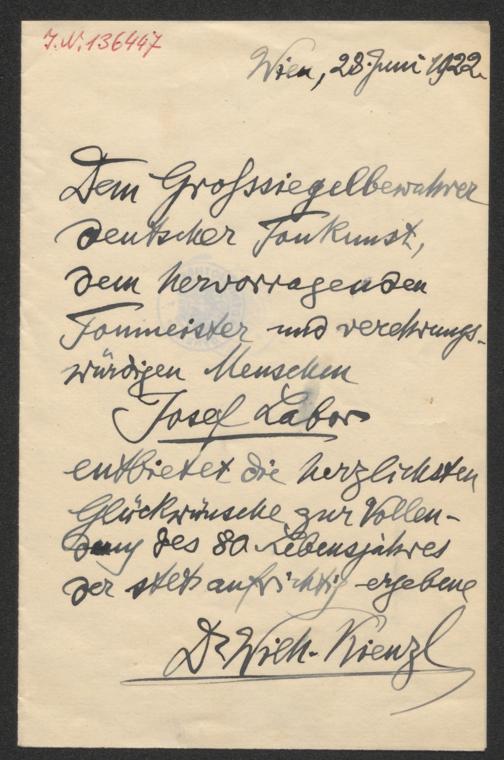 I.N. 136447
Wien, 28. Juni 1922.
Dem Grosssiegelbewahrer
deutscher Tonkunst,
dem hervorragenden
Tonmeister und verehrungs-
würdigen Menschen
Josef Labor
entbietet die herzlichsten
Glückwünsche zur Vollen-
dung des 80. Lebensjahres
der stets aufrichtig ergebene
Dr. Wilh. Kienzl